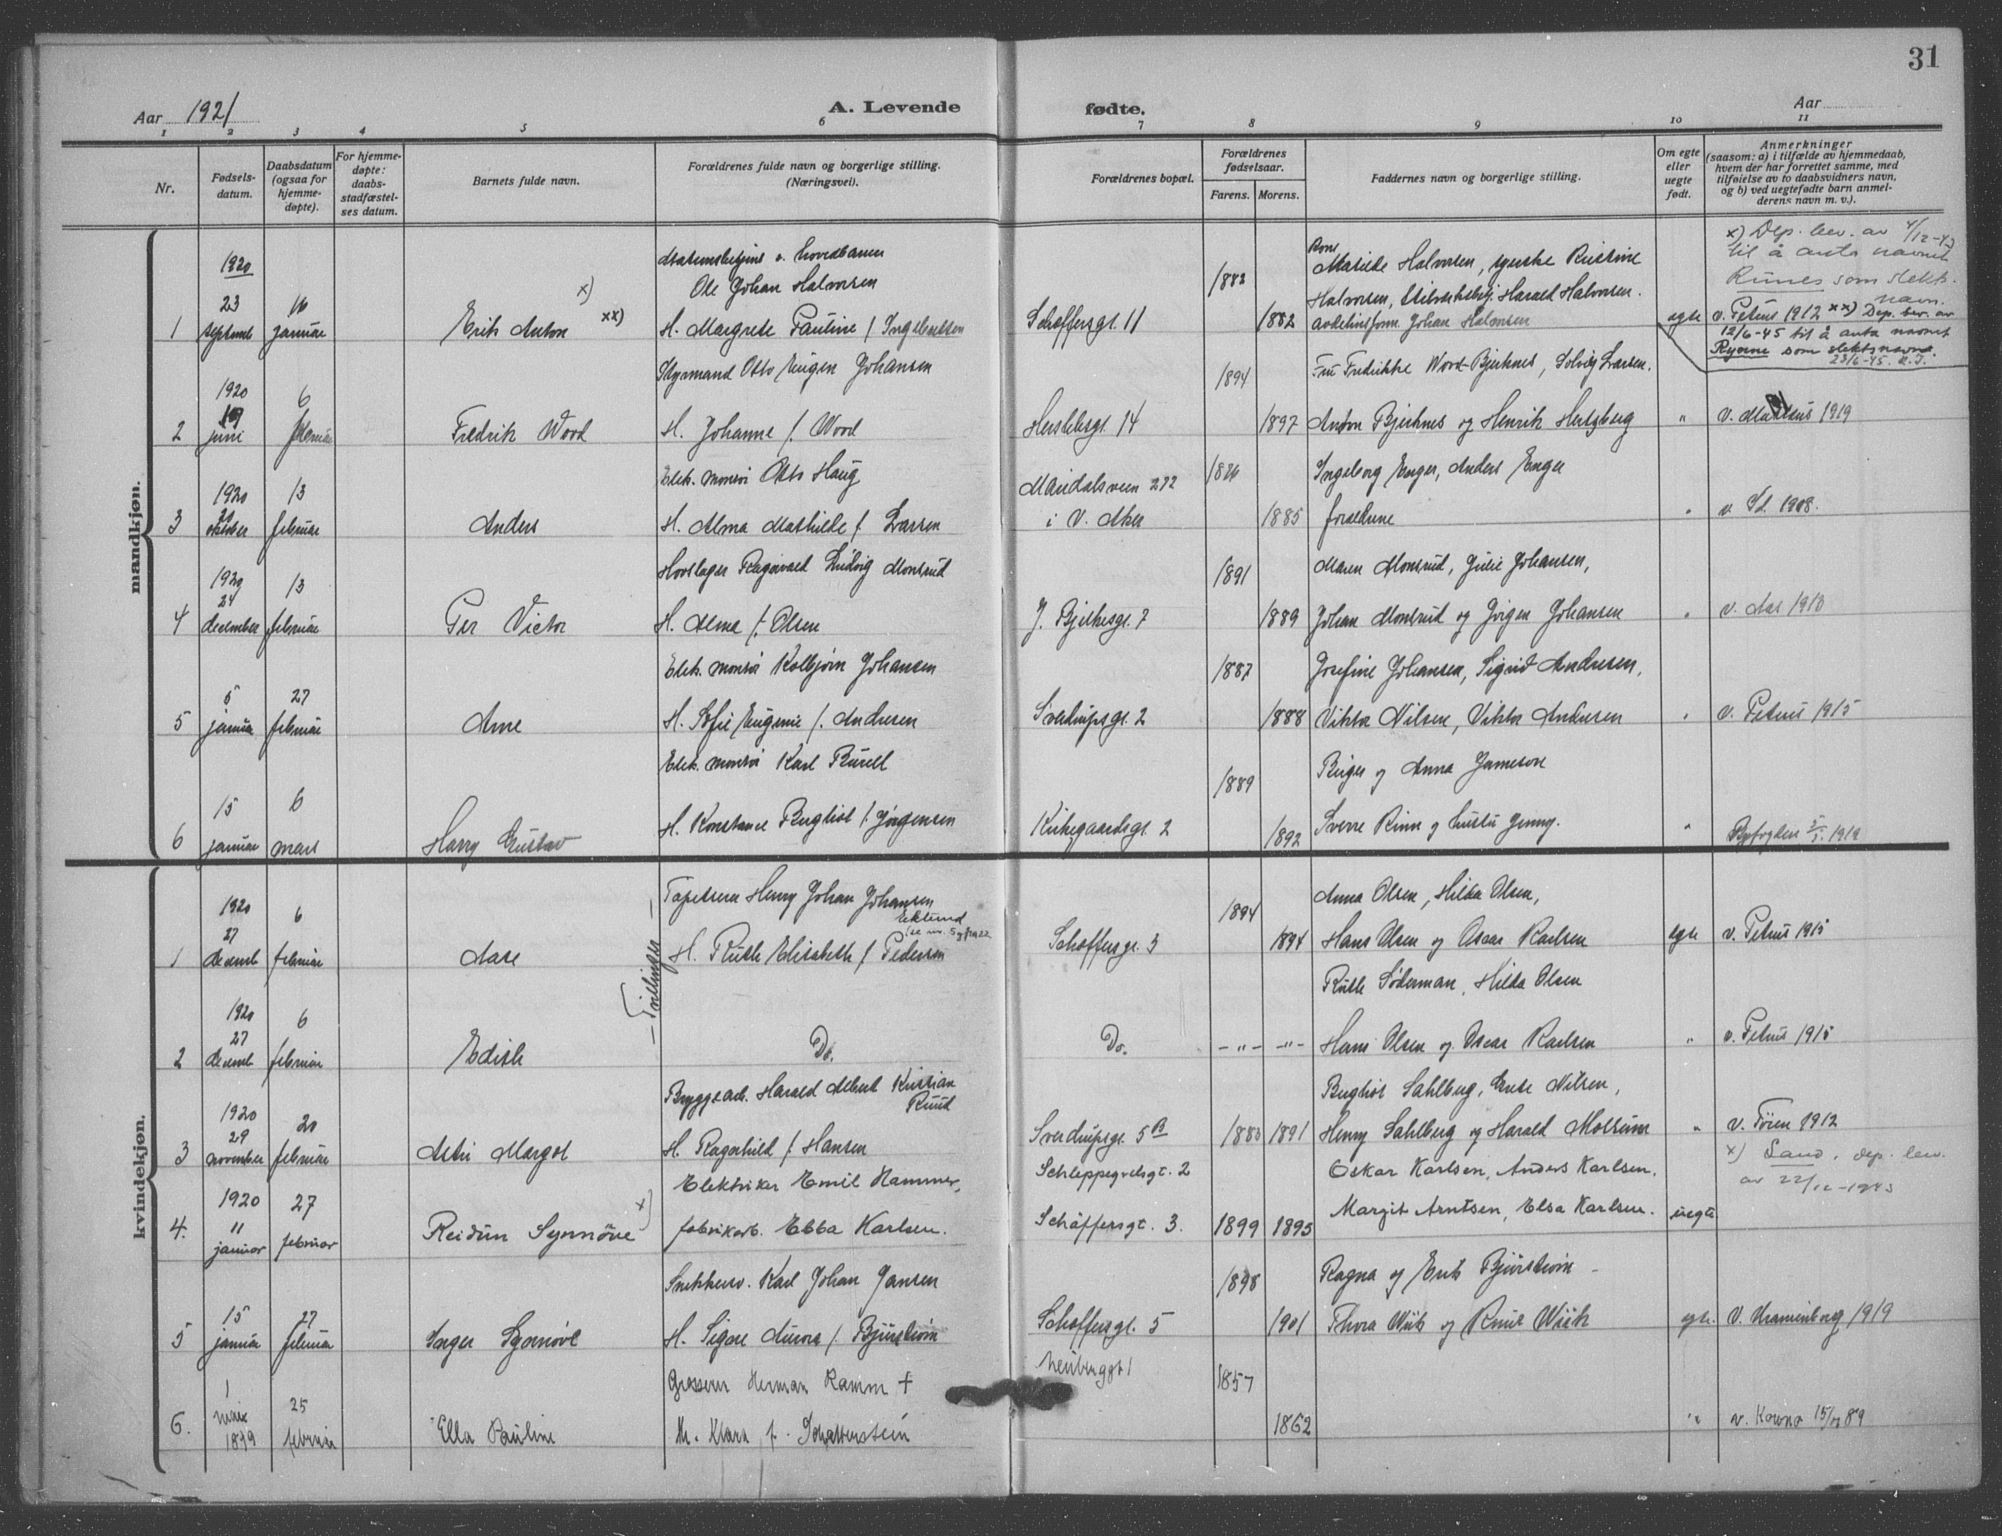 31
Aar 1921
A. Levende
fødte.
Aar
1 2 3 4 5 6 7 8 9 10 11
Nr.
Fødsels-
datum.
Daabsdatum
(ogsaa for
hjemme-
døpte).
For hjemme-
døpte:
daabs-
stadfæstel-
ses datum.
Barnets fulde navn.
Forældrenes fulde navn og borgerlige stilling.
(Næringsvei.)
Forældrenes bopæl.
Forældrenes
fødselsaar.
Farens. Morens.
Faddernes navn og borgerlige stilling.
Om egte
eller
uegte
født.
Anmerkninger
(saasom: a) i tilfælde av hjemmedaab,
hvem der har forrettet samme, med
tilføielse av to daabsvidners navn,
og b) ved uegtefødte barn anmel-
derens navn m. v.).
mandkjøn.
1
1920
23
septemb
16
januar
Erik Anton x) xx)
Ole Johan Halvorsen
H. Margrete Pauline f. Ingebretsen
Schøffersgt. 11
1883
1882
Matilde Halvorsen, Kristine
Halvorsen, Harald Halvorsen.
Johan Halvorsen
egte
x) Dep. bev. av 4/12-42
til å anta navnet
Runes som slekts-
navn.
v. Petrus 1912 xx) Dep. bev. av
12/6-45 til å anta navnet
Ryerne som slektsnavn.
23/6-45.
2
1920
19
juni
6
februar
Fredrik Wood
Styrmand Otto Eugen Johansen
H. Johanne f. Wood
Herslebsgt. 14
1894
1897
Fru Fredrikke Wood-Bjerknes, Solveig Larsen.
Anton Bjerknes og Henrik Hertzberg
"
v. Matteus 1919
3
1920
21
oktober
13
februar
Anders
Elek. montør Otto Haug
H. Alma Mathilde f. Larsen
Maridalsveien 272
i V. Aker
1886
1885
Ingeborg Enger, Anders Enger
forældrene
"
v. Sd. 1908.
4
1920
24
december
13
februar
Per Victor
Hovslager Ragnvald Ludvig Monsrud
H. Alma f. Olsen
J. Bjelkesgt. 7
1891
1889
Maren Monsrud, Julie Johansen,
Johan Monsrud og Jørgen Johansen
"
v. Aas 1913
5
5
januar
27
februar
Arne
Elek. montør Kolbjørn Johansen
H. Sofie Eugenie f. Andresen
Sverdrupsgt. 2
1887
1888
Josefine Johansen, Sigrid Andresen,
Viktor Nilsen, Viktor Andresen
"
v. Petrus 1915
6
15
januar
6
mars
Harry Gustav
Elek. montør Karl Burell
H. Konstance Bergliot f. Jørgensen
Kirkegaardsgt. 2
1889
1892
Birger og Anna Jameson
Sverre Rinn og hustru Jenny.
"
Byfogden 5/5. 1919
kvindekjøn.
1
1920
27
decemb
6
februar
Aase
— Tvillinger —
Tapetserer Henry Johan Johansen
Eklund
H. Ruth Elisabeth f. Pedersen
Schøffersgt. 3
1894
1894
Anna Olsen, Hilda Olsen,
Hans Olsen og Oscar Karlsen
egte
v. Petrus 1915
2
1920
27
decemb
6
februar
Edith
Do.
Do.
— " — — " —
Ruth Söderman, Hilda Olsen
Hans Olsen og Oscar Karlsen
"
v. Petrus 1915
3
1920
29
november
20
februar
Astri Margot
Bryggearb. Harald Albert Kristian
Ruud
H. Ragnhild f. Hansen
Sverdrupsgt. 5B
1883 1891
Bergliot Sahlberg, Grete Nilsen,
Henry Sahlberg og Harald Molsum
"
v. Tøien 1912
4.
1920
11
januar
27
februar
Reidun Synnöve x)
Elektriker Emil Hammer,
fabrikarb. Ebba Karlsen.
Schleppegrelsgt. 2
Schäffersgt. 3.
1899 1895
Oskar Karlsen, Anders Karlsen.
Margit Arntsen, Elsa Karlsen.
uegte
x) Land, dep. bev.
av 22/12-1943
5
15
januar
27
februar
Inger Synnøve
Snekkersv. Karl Johan Jansen
H. Signe Aurora f. Bjurstrøm
Schøffersgt. 5
1898
1901
Ragna og Erik Bjurstrøm —
Thora Wiik og Knut Wiik
egte.
v. Uranienborg 1919
6.
1
mars
1899
25
februar
Ella Pauline
Grosserer Herman Ramm †
H. Klara f.
Neuberggt 1
1857
1862
"
v. Kowno